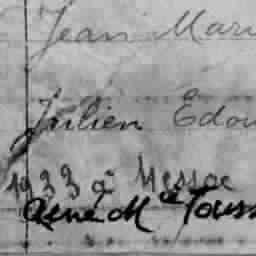 Jean Mari
Julien Edou
1933 à Messac
René Mce Touss